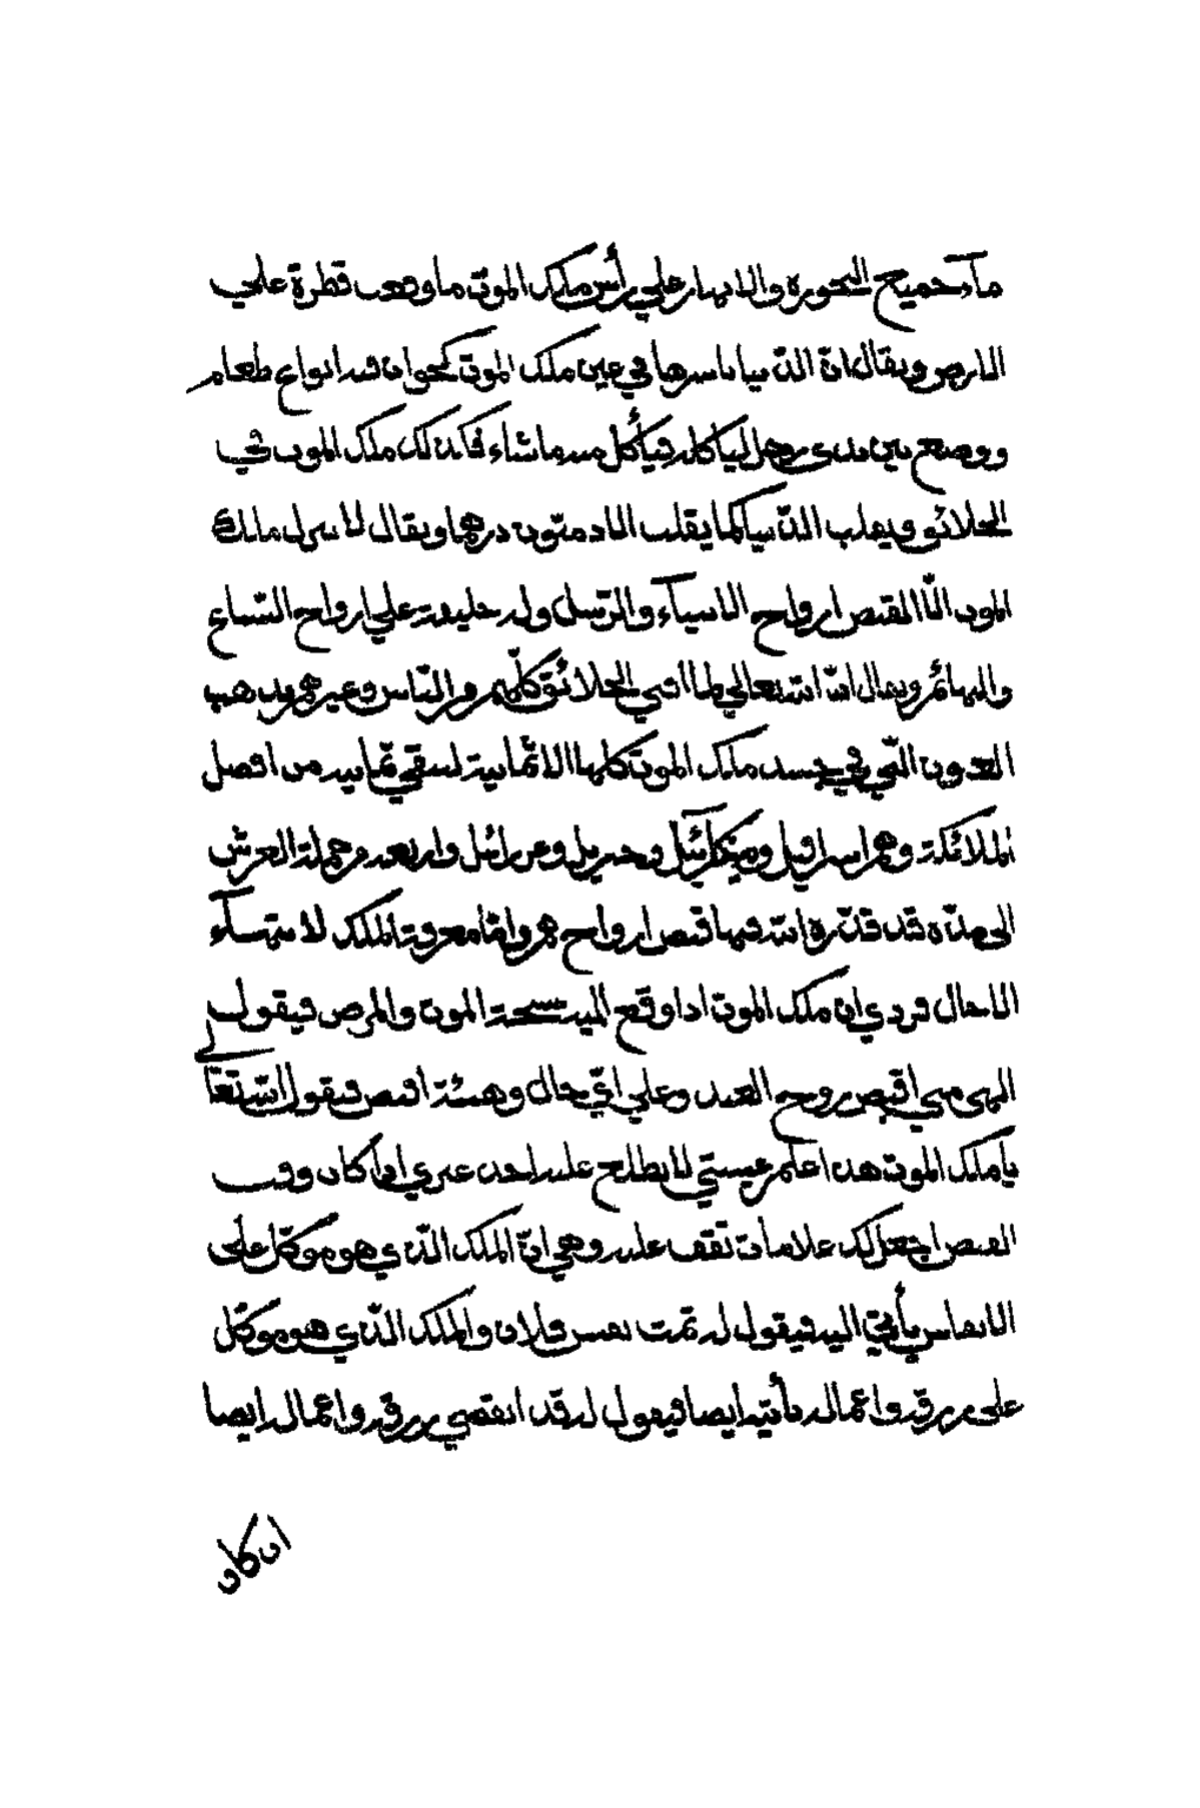 مآء جميع البحوره والانهار علي رأس ملك الموت ما وقعت قطرة علي
الارض ويقال انّ الدّنيا باسرها في عين ملك الموت كخوان فيه انواع طعام
ووضع بين يدي رجل لياكله فيأكل منه ما شاء فكذلك ملك الموت في
الخلائق ويقلب الدّنيا كما يقلب الادمّيون درهما ويقال لا ينزل مالك
الموت الّا القبض ارواح الانبيآء والرّسل وله خليفة علي ارواح السّباع
والبهائم ويقال انّ الله تعالي لما افني الخلائق كلّهم من النّاس وغيرهم يذهب
العيون الّتي في جسد ملك الموت كلها الا ثمانية لبقي ثمانيه من افضل
الملائكة وهم اسرافيل وميكآئيل وجبريل وعزرائيل واربعه من حملة العرش
الي مدّة قد قدّره الله فيها قبض ارواحهم وامّا معرفة الملك لانتهآء
الاجال فردي ان ملك الموت اذا وقع اليه نسخة الموت والمرض فيقول
الهي متي اقبض روح العبد وعلي ايّ حال وهيئة اقبض فيقول الله تعالي
يا ملك الموت هذا علم غيبتي لا يطلع عليه احد غيري اذا كان وقت
القبض اجعل لك علامات تقف عليه وهي انّ الملك الّذي هو موكّل علي
الانفاس يأتي اليه فيقول له تمت نفس فلان والملك الّذي هو موكّل
علي رزقه واعماله يأتيه ايضا فيقول له قد انقضي رزقه واعماله ايضا
ان كان